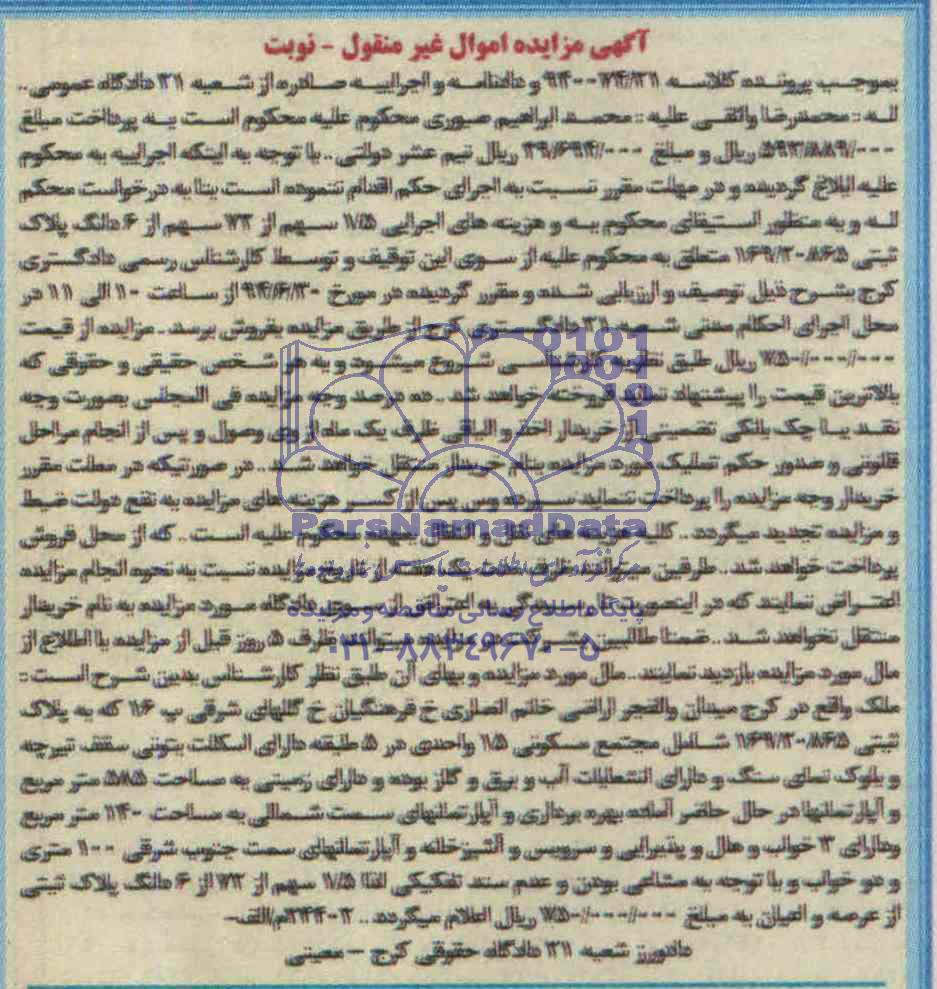 آگهی مزایده اموال غیر منقول - نوبت
بموجب پرونده کلاسه و دادنامه و اجراییه صادره از شعبه ۳۱ دادگاه عمومی..
له : محمدرضا واثقی علیه : محمد ابراهیم صبوری محکوم علیه محکوم است به پرداخت مبلغ
ریال و مبلغ ریال نیم عشر دولتی .. با توجه به اینکه اجراییه به محکوم
علیه ابلاغ گردیده و در مهلت مقرر نسبت به اجرای حکم اقدام ننموده است بنا به درخواست محکم
له و به منظور استیفای محکوم به و هزینه های اجرایی ۱/۵ سهم از ۷۲ سهم از ۶ دانگ پلاک
ثبتی متعلق به محکوم علیه از سوی این توقیف و توسط کارشناس رسمی دادگستری
کرج بشرح ذیل توصیف و ارزیابی شده و مقرر گردیده در مورخ ۹۴/۶/۳۰ از ساعت ۱۰ الی ۱۱ در
محل اجرای احکام مدنی شعبه ۳۱ دادگستری کرج از طریق مزایده بفروش برسد. مزایده از قیمت
ریال طبق نظریه کارشناسی شروع میشود و به هر شخص حقیقی و حقوقی که
بالاترین قیمت را پیشنهاد نماید فروخته خواهد شد .. ده درصد وجه مزایده فی المجلس بصورت وجه
نقد یا چک بانکی تضمینی از خریدار اخذ و الباقی ظرف یک ماه از وی وصول و پس از انجام مراحل
قانونی و صدور حکم تملیک مورد مزایده بنام خریدار منتقل خواهد شد .. در صورتیکه در مهلت مقرر
خریدار وجه مزایده را پرداخت ننماید سپرده وی پس از کسر هزینه های مزایده به نفع دولت ضبط
و مزایده تجدید میگردد .. کلیه هزینه های نقل و انتقال بعهده محکوم علیه است .. که از محل فروش
پرداخت خواهد شد .. طرفین میتوانند ظرف مدت یک هفته از تاریخ مزایده نسبت به نحوه انجام مزایده
اعتراض نمایند که در اینصورت تا رسیدگی به اعتراض از سوی دادگاه مورد مزایده به نام خریدار
منتقل نخواهد شد .. ضمنا طالبین شرکت در مزایده میتوانند ظرف ۵ روز قبل از مزایده با اطلاع از
مال مورد مزایده بازدید نمایند.. مال مورد مزایده و بهای آن طبق نظر کارشناس بدین شرح است :
ملک واقع در کرج میدان والفجر اراضی خانم انصاری خ فرهنگیان خ گلهای شرقی پ ۱۶ که به پلاک
ثبتی شامل مجتمع مسکونی ۱۵ واحدی در ۵ طبقه دارای اسکلت بتونی سقف تیرچه
و بلوک نمای سنگ و دارای انشعابات آب و برق و گاز بوده و دارای زمینی به مساحت ۵۸۵ متر مربع
و آپارتمانها در حال حاضر آماده بهره برداری و آپارتمانهای سمت شمالی به مساحت ۱۴۰ متر مربع
ودارای ۳ خواب و هال و پذیرایی و سرویس و آشپزخانه و آپارتمانهای سمت جنوب شرقی ۱۰۰ متری
و دو خواب و با توجه به مشاعی بودن و عدم سند تفکیکی لذا ۱/۵ سهم از ۷۲ از ۶ دانگ پلاک ثبتی
از عرصه و اعیان به مبلغ ریال اعلام میگردد .. م/الف-
دادورز شعبه ۳۱ دادگاه حقوقی کرج - معینی
ParsNamadData
پایگاه اطلاع رسانی مناقصه و مزایده
۰۲۱-۸۸۳۴۹۶۷۰-۵